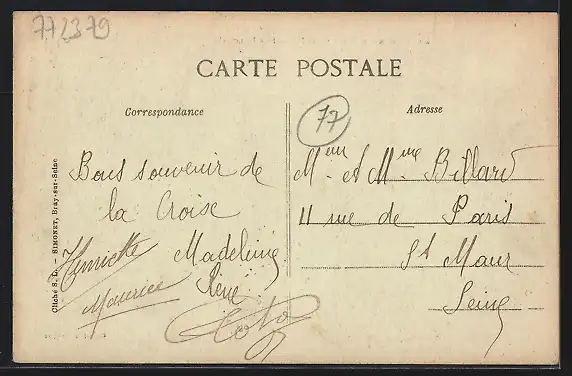 772379
CARTE POSTALE
Correspondance
Adresse
77
Bons souvenir de
la Croise
Henriette
Madeleine
Maurice
René
Toto
Mr et Mme Billard
11 rue de Paris
St Maur
Seine
Cliché S. D. — SIMONET, Bray-sur-Seine